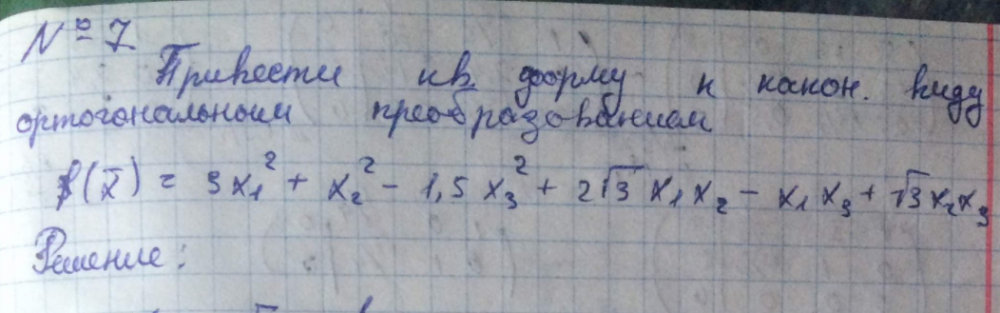 № 7
Привести кв. форму к канон. виду
ортогональным преобразованием
f(x̄) = 3x₁² + x₂² - 1,5x₃² + 2√3 x₁x₂ - x₁x₃ + √3x₂x₃
Решение: